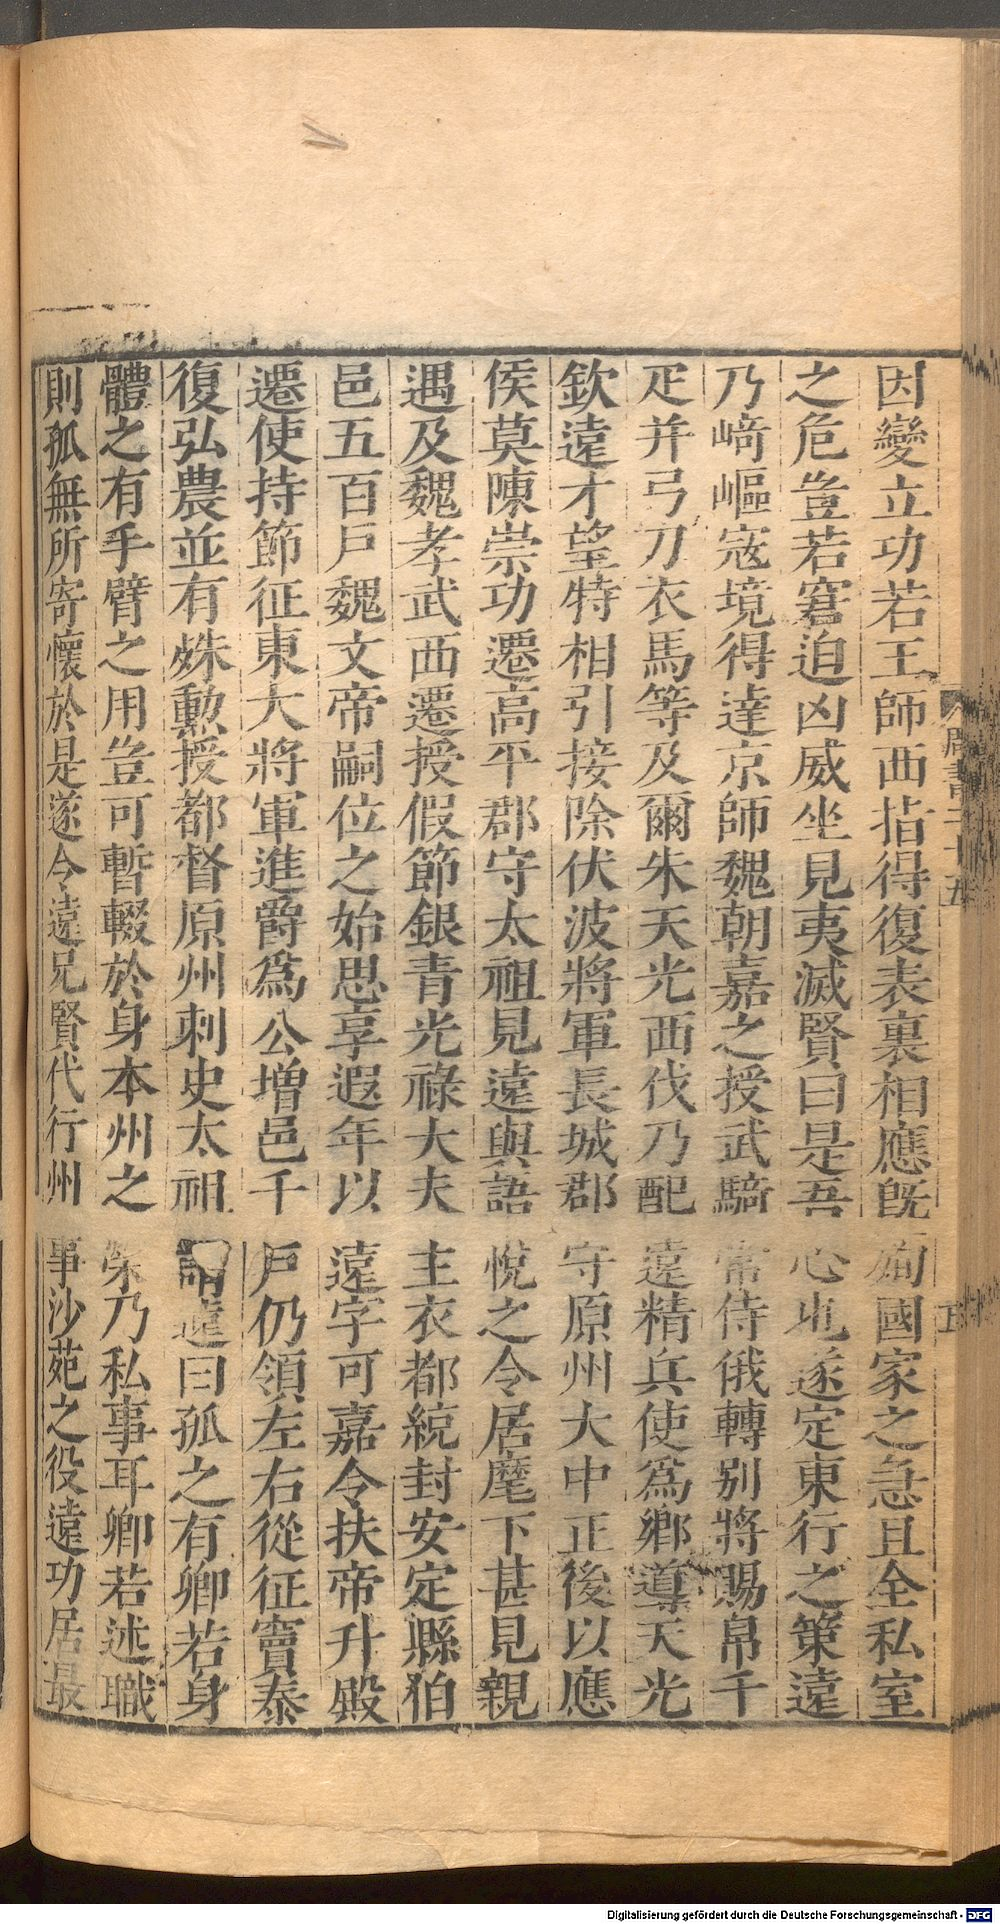 因變立功若王師西指得復表裏相應旣殉國家之急且全私室
之危豈若窘迫凶威坐見夷滅賢曰是吾心也遂定東行之策遠
乃崎嶇寇境得達京師魏朝嘉之授武騎常侍俄轉別將賜帛千
疋并弓刀衣馬等及爾朱天光西伐乃配遠精兵使爲鄉導天光
欽遠才望特相引接除伏波將軍長城郡守原州大中正後以應
侯莫陳崇功遷高平郡守太祖見遠與語悅之令居麾下甚見親
遇及魏孝武西遷授假節銀青光祿大夫主衣都統封安定縣伯
邑五百戶魏文帝嗣位之始思享遐年以遠字可嘉令扶帝升殿
遷使持節征東大將軍進爵爲公增邑千戶仍領左右從征竇泰
復弘農並有殊勳授都督原州刺史太祖謂遠曰孤之有卿若身
體之有手臂之用豈可暫輟於身本州之榮乃私事耳卿若述職
則孤無所寄懷於是遂令遠兄賢代行州事沙苑之役遠功居最
周書二十五
五
Digitalisierung gefördert durch die Deutsche Forschungsgemeinschaft - DFG